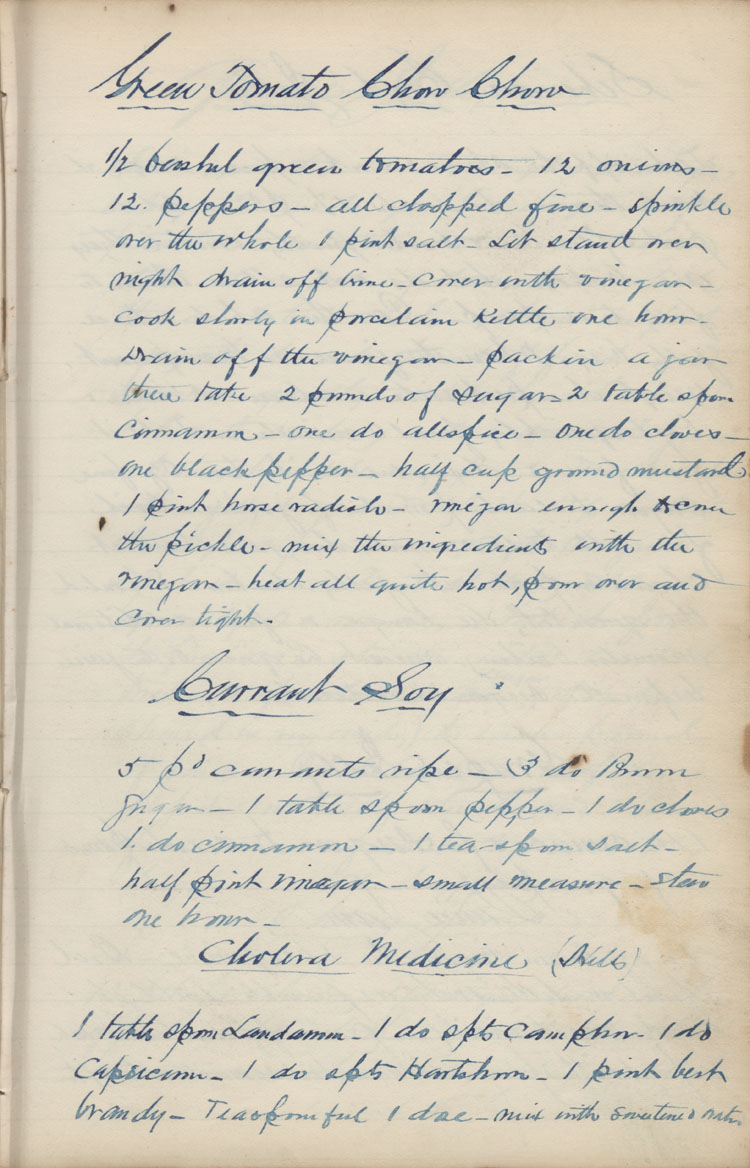 Green Tomato Chow Chow
1/2 bushel green tomatoes - 12 onions -
12. peppers - all chopped fine - sprinkle
over the whole 1 pint salt - Let stand over
night drain off brine - cover with vinegar -
cook slowly in porcelain Kettle one hour -
Drain off the vinegar - pack in a jar
then take 2 pounds of sugar - 2 table spoon
Cinnamon - one do allspice - one do cloves -
one black pepper - half cup ground mustard
1 pint horse radish - vinegar enough to cover
the pickle - mix the ingredients with the
vinegar - heat all quite hot, pour over and
cover tight -
Currant Soy
5 pd currants ripe - 3 do Brown
Sugar - 1 table spoon pepper - 1 do cloves
1. do cinnamon - 1 tea-spoon salt -
half pint vinegar - small measure - stew
one hour -
Cholera Medicine
1 table spoon Laudanum - 1 do spts Camphor - 1 do
Capsicum - 1 do spts Hartshorn - 1 pint best
brandy - Teaspoonful 1 dose - mix with sweetened water